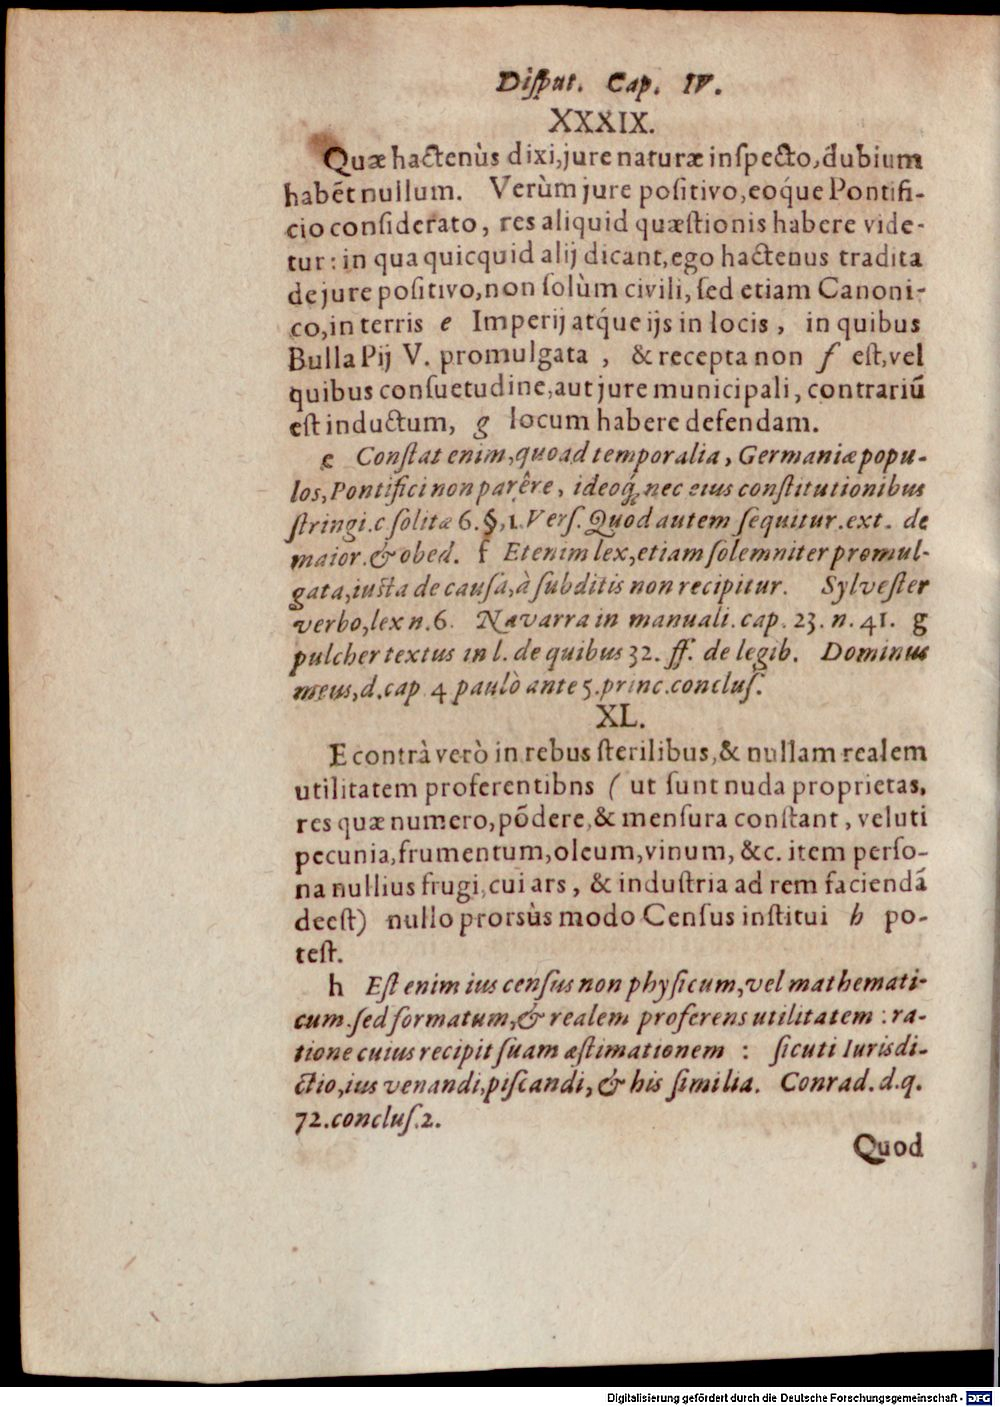 Disput. Cap. IV.
XXXIX.
Quæ hactenùs dixi, jure naturæ inſpecto, dubium
habēt nullum. Verùm jure poſitivo, eoq́ue Pontifi-
cio conſiderato, res aliquid quæſtionis habere vide-
tur: in qua quicquid alij dicant, ego hactenus tradita
de jure poſitivo, non ſolùm civili, ſed etiam Canoni-
co, in terris e Imperij atq́ue ijs in locis, in quibus
Bulla Pij V. promulgata, & recepta non f eſt, vel
quibus conſuetudine, aut jure municipali, contrariū
eſt inductum, g locum habere defendam.
e Conſtat enim, quoad temporalia, Germaniæ popu-
los, Pontifici non parêre, ideoq́; nec eius conſtitutionibus
ſtringi. c ſolitæ 6. §. 1. Verſ. Quod autem ſequitur. ext. de
maior. & obed. f Etenim lex, etiam ſolemniter promul-
gata, iuſta de cauſa, à ſubditis non recipitur. Sylveſter
verbo, lex n. 6. Navarra in manuali. cap. 23. n. 41. g
pulcher textus in l. de quibus 32. ff. de legib. Dominus
meus, d. cap 4 paulò ante 5. princ. concluſ.
XL.
E contrà verò in rebus ſterilibus, & nullam realem
utilitatem proferentibns ( ut ſunt nuda proprietas,
res quæ numero, pōdere, & menſura conſtant, veluti
pecunia, frumentum, oleum, vinum, &c. item perſo-
na nullius frugi, cui ars, & induſtria ad rem faciendā
deeſt) nullo prorsùs modo Cenſus inſtitui h po-
teſt.
h Eſt enim ius cenſus non phyſicum, vel mathemati-
cum. ſed formatum, & realem proferens utilitatem : ra-
tione cuius recipit ſuam æſtimationem : ſicuti Iurisdi-
ctio, ius venandi, piſcandi, & his ſimilia. Conrad. d. q.
72. concluſ. 2.
Quod
Digitalisierung gefördert durch die Deutsche Forschungsgemeinschaft - DFG